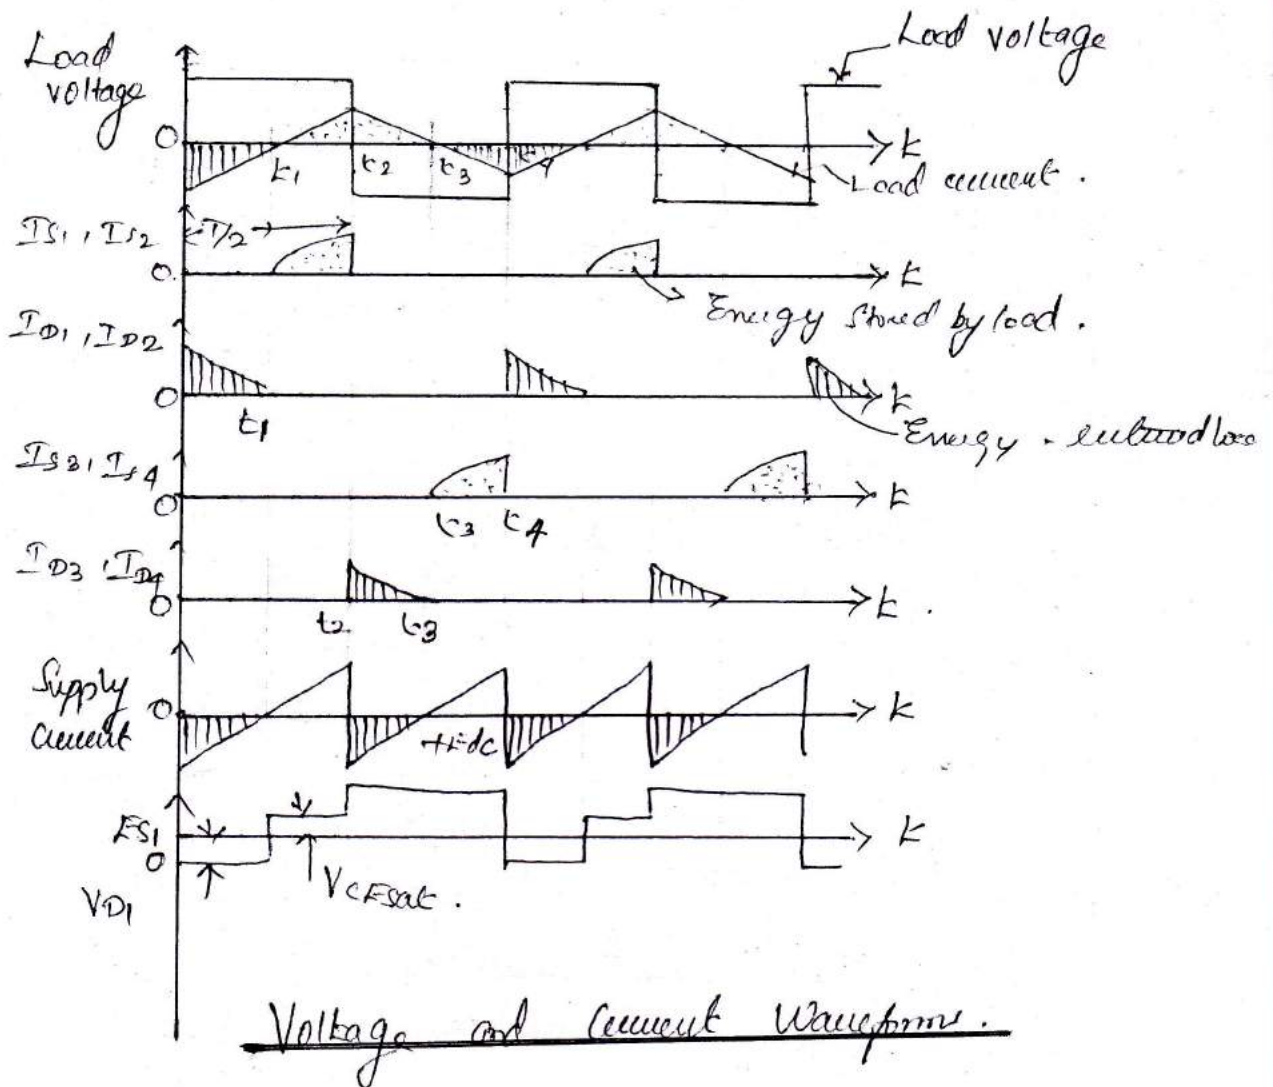 Load voltage
Load
voltage
0
t1
t2
t3
t4
t
Load current .
IS1 , IS2
T/2
0
t
Energy stored by load .
ID1 , ID2
0
t1
t
Energy
IS3 , IS4
0
t3 t4
t
ID3 , ID4
0
t2 t3
t .
Supply
current
0
+Edc
t
ES1
0
t
VCEsat .
VD1
Voltage and current Waveforms .